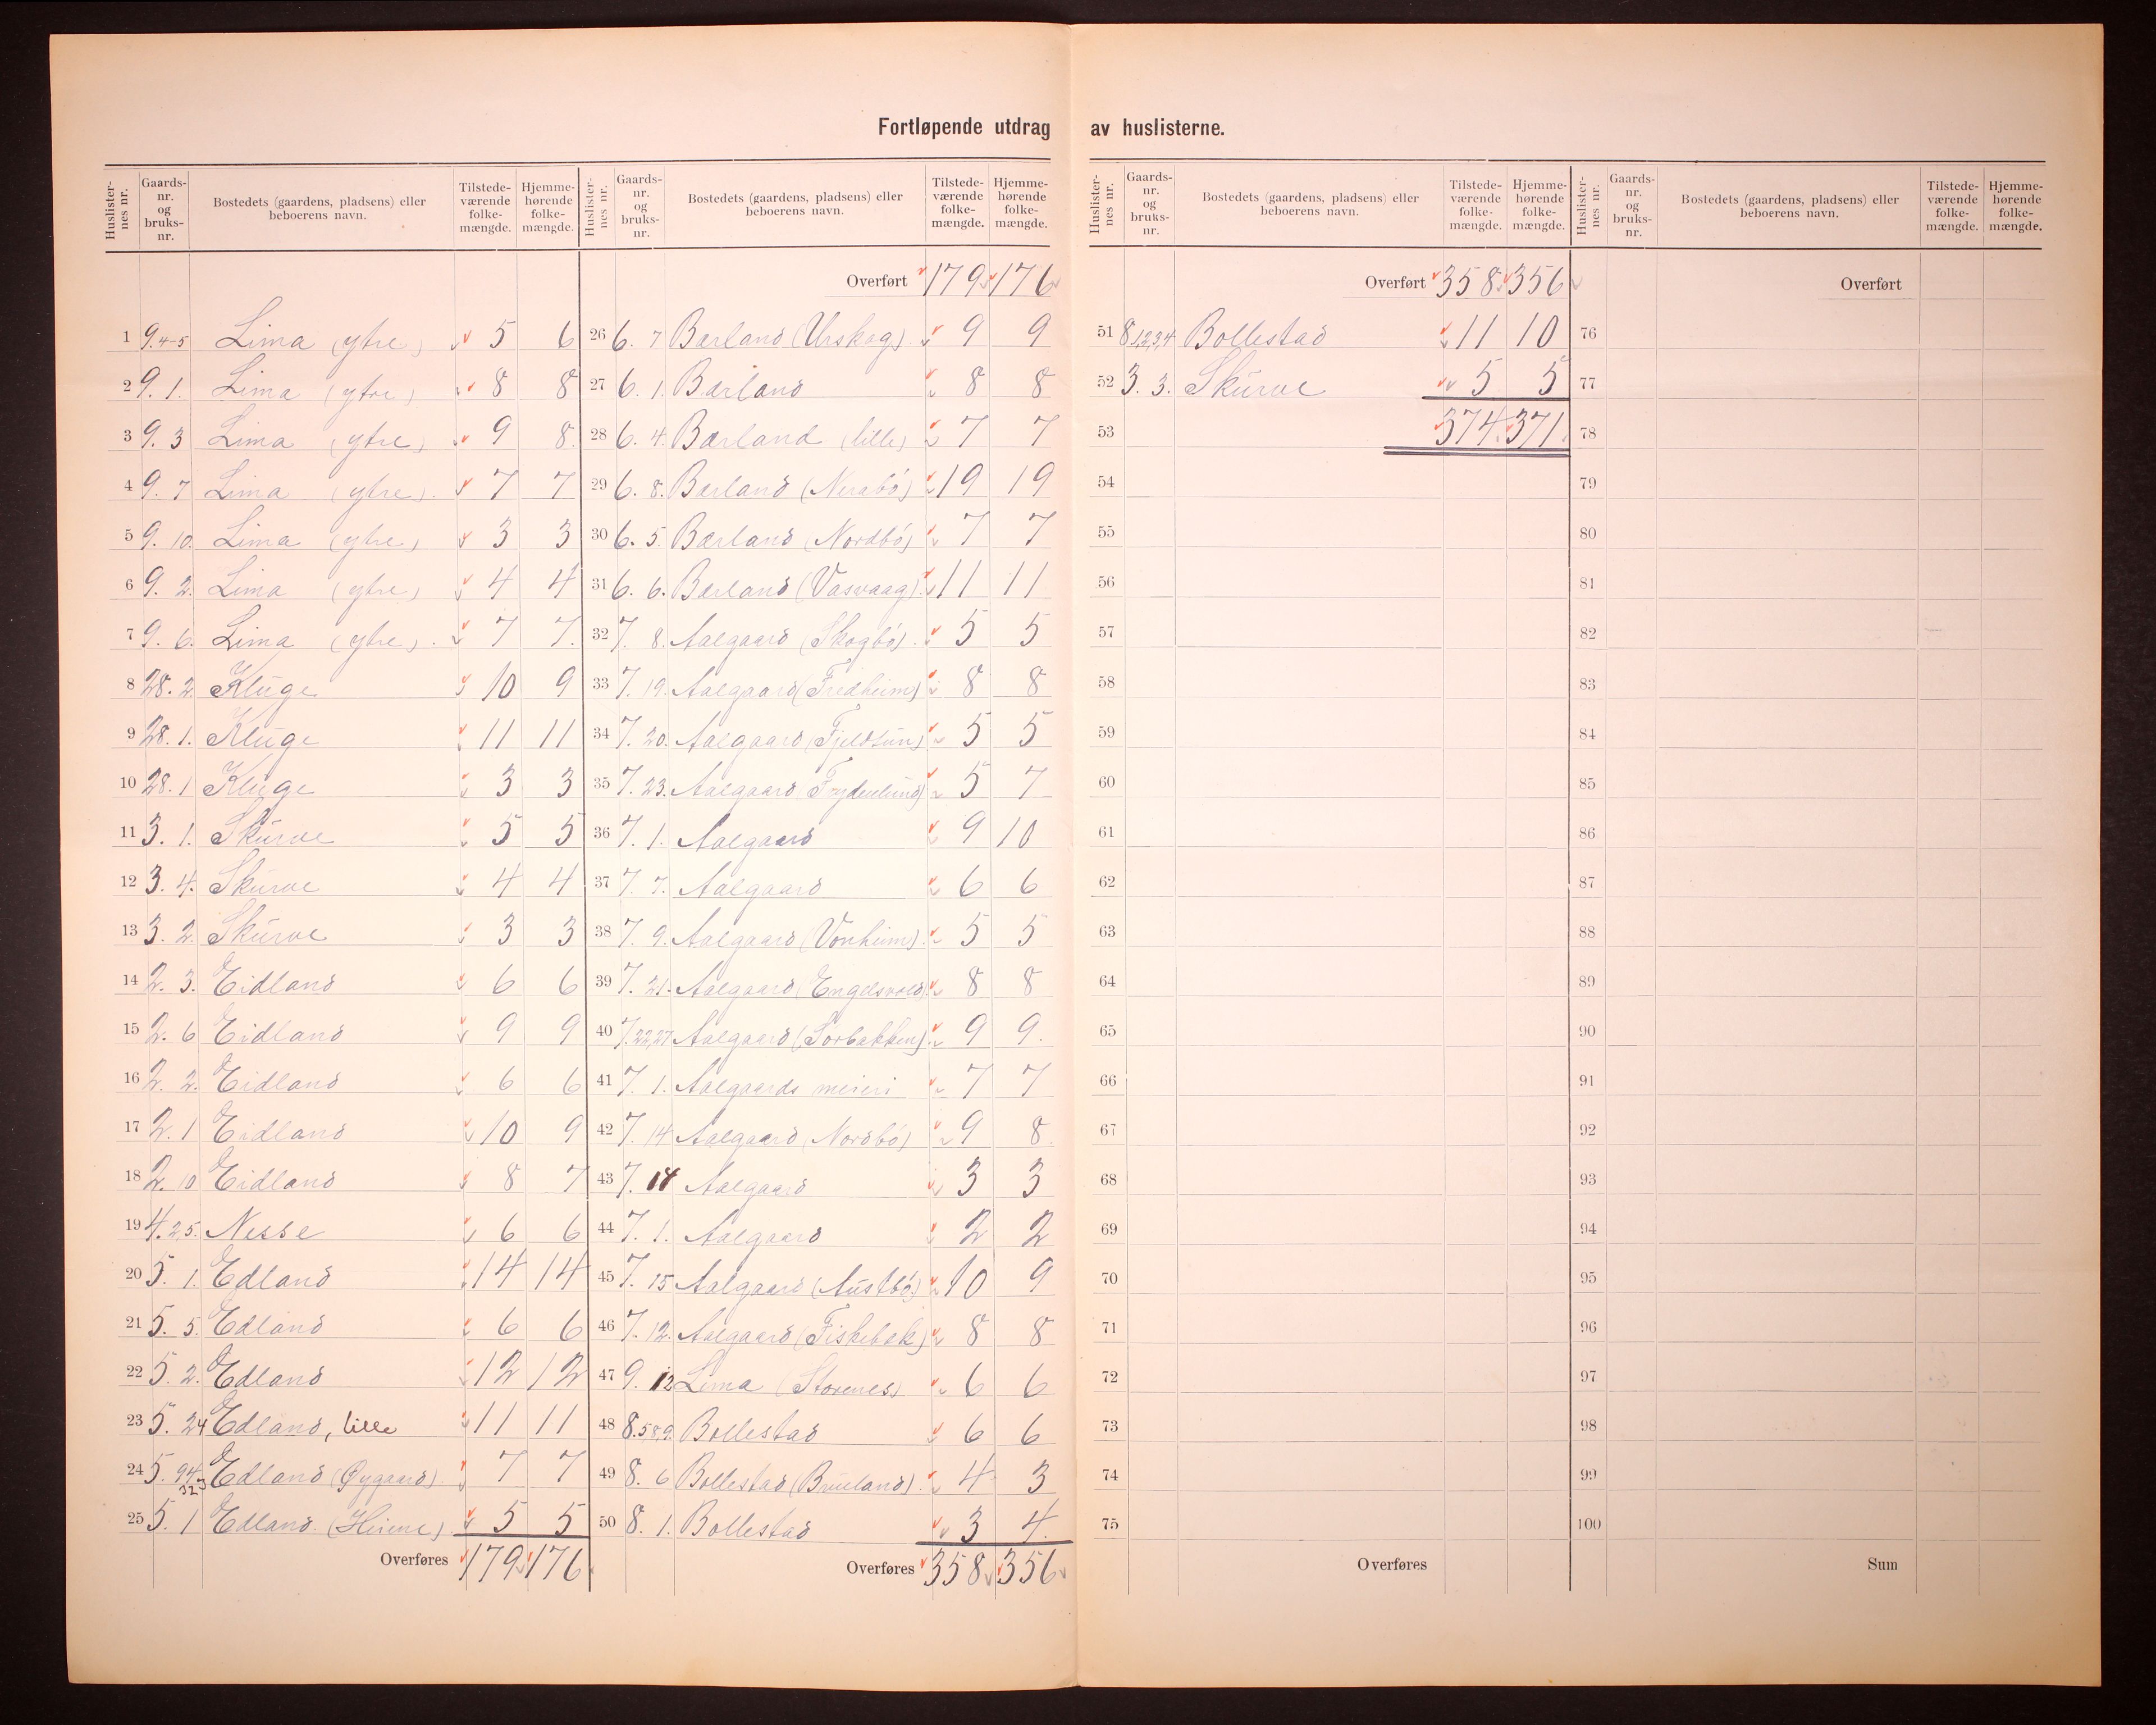 Fortløpende utdrag av huslisterne.
Huslister-nes nr. Gaards-nr. og bruks-nr. Bostedets (gaardens, pladsens) eller beboerens navn. Tilstede-værende folke-mængde. Hjemme-hørende folke-mængde.
1 9. 4-5 Lima (ytre) 5 6
2 9. 1. Lima (ytre) 8 8
3 9. 3 Lima (ytre) 9 8.
4 9. 7 Lima (ytre). 7 7
5 9. 10. Lima (ytre) 3 3
6 9. 2. Lima (ytre) 4 4
7 9. 6. Lima (ytre). 7 7.
8 28. 2. Kluge 10 9
9 28. 1. Kluge 11 11
10 28. 1 Kluge 3 3
11 3. 1. Skurve 5 5
12 3. 4. Skurve 4 4
13 3. 2. Skurve 3 3
14 2. 3. Eidland 6 6
15 2. 6 Eidland 9 9
16 2. 2. Eidland 6 6
17 2. 1 Eidland 10 9
18 2. 10 Eidland 8 7
19 4. 25. Nesse 6 6
20 5. 1. Edland 14 14
21 5. 5. Edland 6 6
22 5. 2. Edland 12 12
23 5. 24 Edland, lille 11 11
24 5. Edland (Øygaard). 7 7
25 5. 1 Edland. 5 5
Overføres 179 176
Huslister-nes nr. Gaards-nr. og bruks-nr. Bostedets (gaardens, pladsens) eller beboerens navn. Tilstede-værende folke-mængde. Hjemme-hørende folke-mængde.
Overført 179 176
26 6. 7 Bærland (Urskog). 9 9
27 6. 1. Bærland 8 8
28 6. 4. Bærland (lille) 7 7
29 6. 8. Bærland (Nerabø) 19 19
30 6. 5. Bærland (Nordbø) 7 7
31 6. 6. Bærland (Vasvaag). 11 11
32 7. 8. Aalgaard (Skogbø). 5 5
33 7. 19. Aalgaard (Fredheim) 8 8
34 7. 20. Aalgaard (Fjeldtun) 5 5
35 7. 23. Aalgaard (Frydenlund) 5 7
36 7. 1. Aalgaard 9 10
37 7. 7. Aalgaard 6 6
38 7. 9. Aalgaard (Vonheim). 5 5
39 7. 21. Aalgaard (Engelsvold) 8 8
40 7. 22,27 Aalgaard (Sorbakken) 9 9.
41 7. 1. Aalgaards meieri 7 7
42 7. 14 Aalgaard (Nordbø) 9 8.
43 7. 14 Aalgaard 3 3
44 7. 1. Aalgaard 2 2
45 7. 15 Aalgaard (Austbø) 10 9
46 7. 12. Aalgaard (Fiskebæk) 8 8
47 9. 12 Lima (Storenes) 6 6
48 8. 5,8,9. Bollestad 6 6
49 8. 6 Bollestad (Bruland). 4 3
50 8. 1. Bollestad 3 4.
Overføres 358 356
Huslister-nes nr. Gaards-nr. og bruks-nr. Bostedets (gaardens, pladsens) eller beboerens navn. Tilstede-værende folke-mængde. Hjemme-hørende folke-mængde.
Overført 358 356
51 8. 1,2,3,4 Bollestad 11 10
52 3. 3. Skurve 5 5
53 374. 371.
54
55
56
57
58
59
60
61
62
63
64
65
66
67
68
69
70
71
72
73
74
75
Overføres
Huslister-nes nr. Gaards-nr. og bruks-nr. Bostedets (gaardens, pladsens) eller beboerens navn. Tilstede-værende folke-mængde. Hjemme-hørende folke-mængde.
Overført
76
77
78
79
80
81
82
83
84
85
86
87
88
89
90
91
92
93
94
95
96
97
98
99
100
Sum